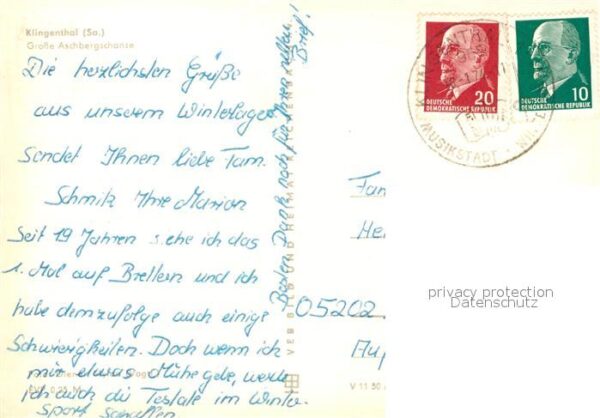 Klingenthal (Sa.)
Große Aschbergschanze
Die herzlichsten Grüße
aus unserem Winterlager
Sendet Ihnen liebe Fam.
Schmitz Ihre Marion
Seit 19 Jahren stehe ich das
1. Mal auf Brettern und ich
habe demzufolge auch einige
Schwierigkeiten. Doch wenn ich
mir etwas Mühe gebe, werde
ich auch die Testate im Winter-
sport schaffen
Besten Dank noch für Ihren netten
Brief!
VEB BILD UND HEIMAT
V 11 50
Fam
He
05202
Au
DEUTSCHE
DEMOKRATISCHE REPUBLIK
20
DEUTSCHE
DEMOKRATISCHE REPUBLIK
10
MUSIKSTADT
privacy protection
Datenschutz